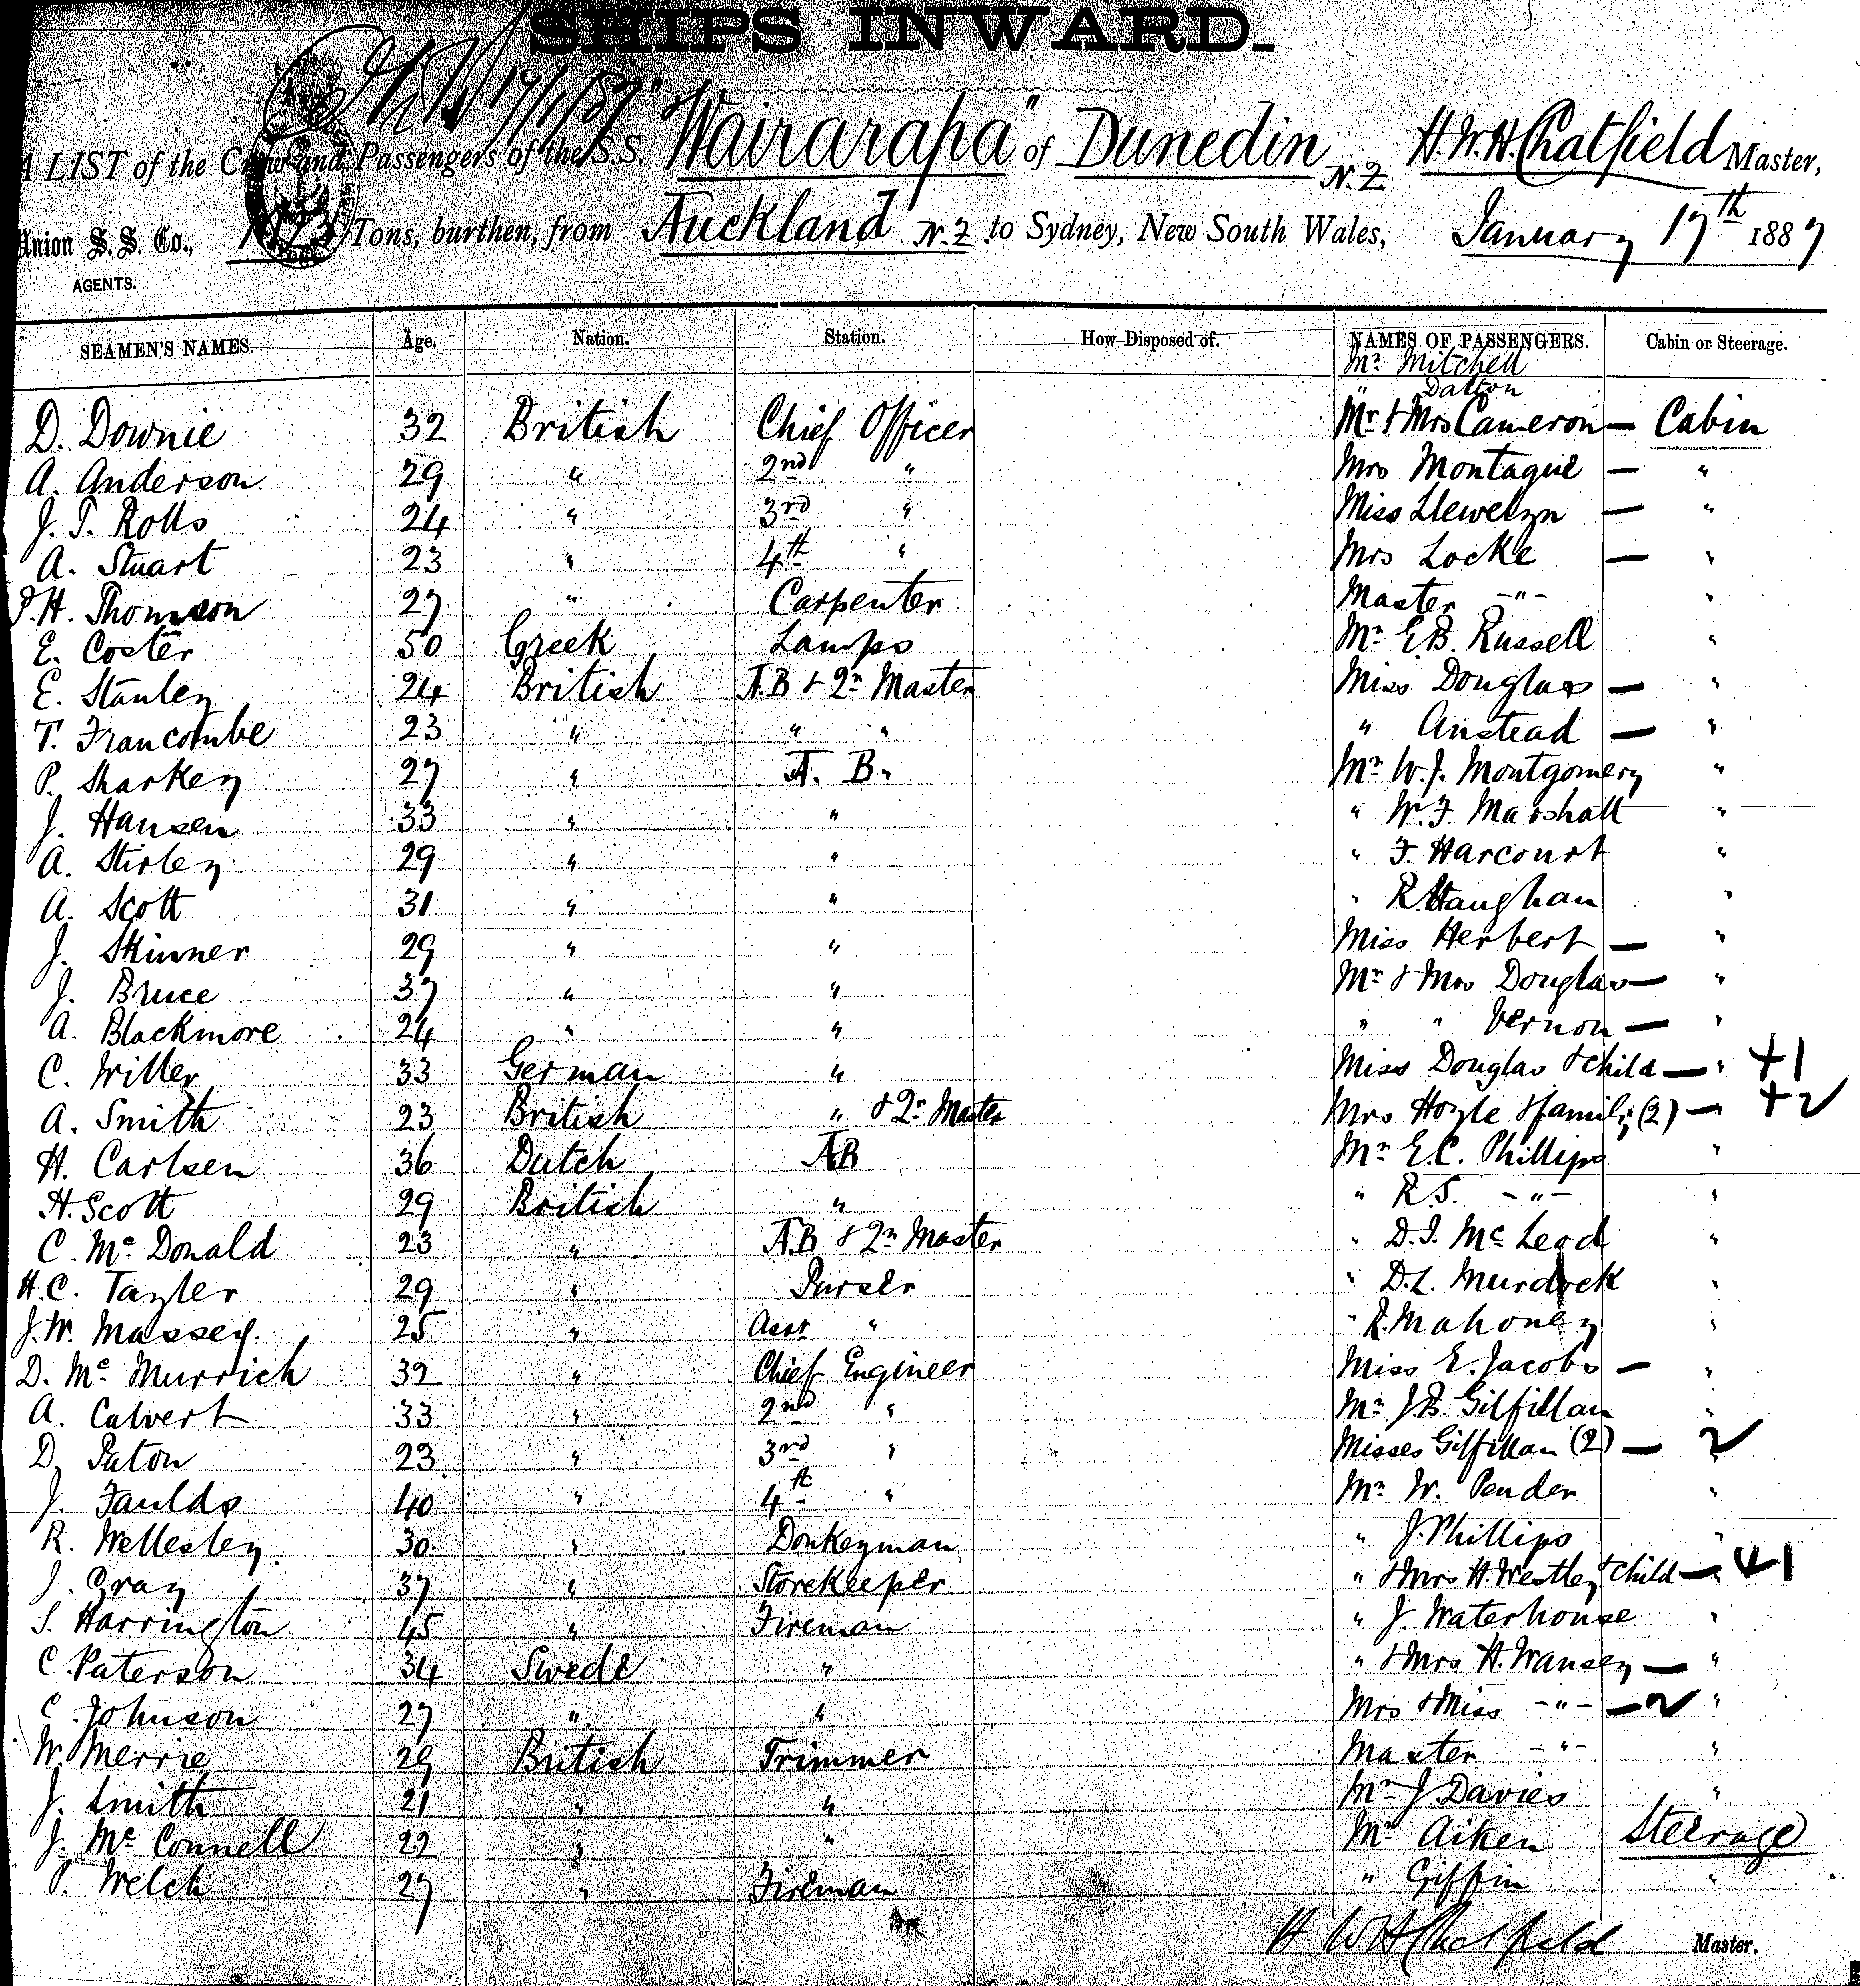 SHIPS INWARD.
A LIST of the Crew and Passengers of the S.S. "Wairarapa" of Dunedin N.Z. H.W.H. Chatfield Master,
Union S.S. Co., Tons, burthen, from Auckland N.Z. to Sydney, New South Wales, January 17th 1887
AGENTS.
SEAMEN'S NAMES. Age. Nation. Station. How Disposed of. NAMES OF PASSENGERS. Cabin or Steerage.
Mr Mitchell
" Dalton
D. Downie 32 British Chief Officer Mr & Mrs Cameron — Cabin
A. Anderson 29 " 2nd " Mrs Montague — "
J. T. Rolls 24 " 3rd " Miss Llewelyn — "
A. Stuart 23 " 4th " Mrs Locke — "
J. H. Thomson 27 " Carpenter Master -"- "
E. Coster 50 Greek Lamps Mr E.B. Russell "
E. Stanley 24 British A.B & 2r Master Miss Douglas — "
T. Francombe 23 " " " " Anstead — "
P. Sharkey 27 " A. B. Mr W.J. Montgomery "
J. Hansen 33 " " " W.F. Marshall "
A. Stirley 29 " " " F. Harcourt "
A. Scott 31 " " " R. Haughan "
J. Skinner 29 " " Miss Herbert — "
J. Bruce 37 " " Mr & Mrs Douglas — "
A. Blackmore 24 " " " " Vernon — "
C. Willer 33 German " Miss Douglas & child — " +1
A. Smith 23 British " & 2r Master Mrs Hoyle & family (2) — " +2
H. Carlsen 36 Dutch AB Mr E.C. Phillips "
H. Scott 29 British " " R.S. -"- "
C. Mc Donald 23 " A.B & 2r Master " D.J. McLeod "
H.C. Tayler 29 " Purser " D.L. Murdock "
J.W. Massey. 25 " Asst " " R. Mahoney "
D. Mc Murrich 32 " Chief Engineer Miss E. Jacobs — "
A. Calvert 33 " 2nd " Mr J.B. Gilfillan "
D. Paton 23 " 3rd " Misses Gilfillan (2) — 2
J. Faulds 40 " 4th " Mr W. Pender "
R. Wellesley 30 " Donkeyman " J. Phillips "
J. Gray 37 " Storekeeper " & Mrs H. Westley & child — " +1
S. Harrington 45 " Fireman " J. Waterhouse "
C. Paterson 34 Swede " " & Mrs H. Wansey — "
C. Johnson 27 " " Mrs & Miss -"- — 2 "
W. Merrie 29 British Trimmer Master -"- "
J. Smith 21 " " Mr J Davies "
J. Mc Connell 22 " " Mr Aiken Steerage
P. Welch 27 " Fireman " Giffin "
H W H Chatfield Master.